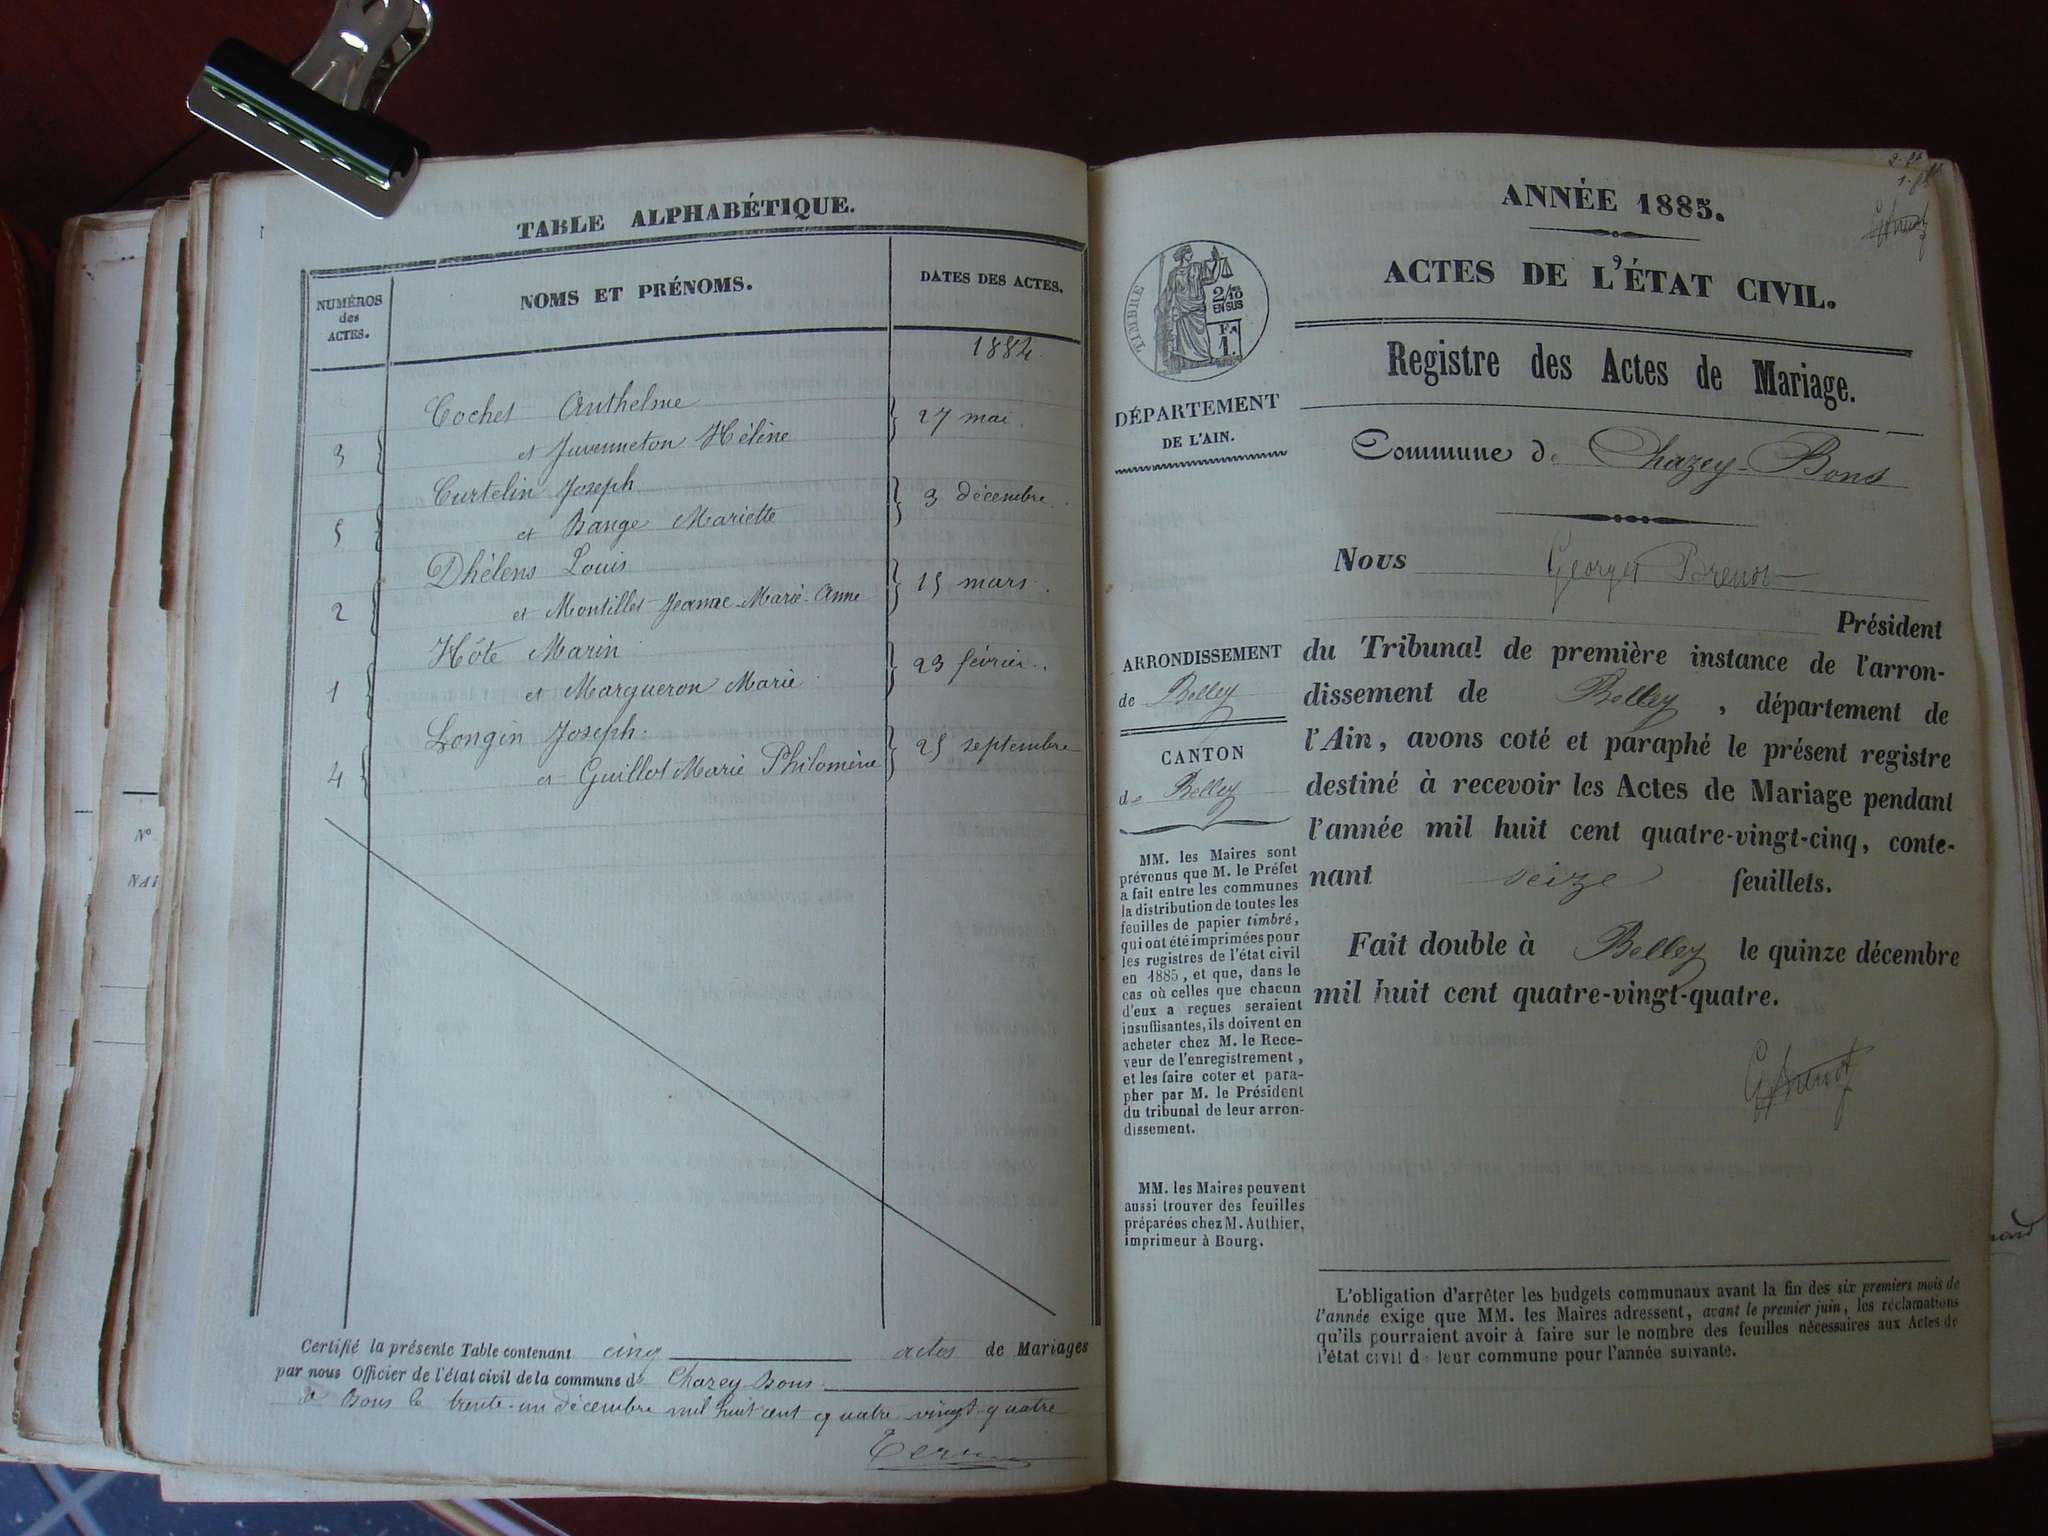 TABLE ALPHABÉTIQUE.
NUMÉROS
des
ACTES.
NOMS ET PRÉNOMS.
DATES DES ACTES.
1884.
Cochet Anthelme
3 et Juvenneton Hélène 27 mai.
Curtelin Joseph
5 et Bange Mariette 3 décembre.
Dhélens Louis
2 et Montillet Jeanne-Marie-Anne 15 mars.
Hôte Marin
1 et Margueron Marie 23 février.
Longin Joseph.
4 et Guillot Marie Philomène 25 septembre
Certifié la présente Table contenant cinq actes de Mariages
par nous Officier de l'état civil de la commune de Chazey-Bons
à Bons le trente-un décembre mil huit cent quatre-vingt-quatre
ANNÉE 1885.
ACTES DE L'ÉTAT CIVIL.
TIMBRE
2/10
EN SUS
1.
Registre des Actes de Mariage.
DÉPARTEMENT
DE L'AIN.
Commune de Chazey-Bons
Nous Georges Brenot
Président
du Tribunal de première instance de l'arron-
dissement de Belley, département de
l'Ain, avons coté et paraphé le présent registre
destiné à recevoir les Actes de Mariage pendant
l'année mil huit cent quatre-vingt-cinq, conte-
nant seize feuillets.
Fait double à Belley le quinze décembre
mil huit cent quatre-vingt-quatre.
ARRONDISSEMENT
de Belley
CANTON
de Belley
MM. les Maires sont
prévenus que M. le Préfet
a fait entre les communes
la distribution de toutes les
feuilles de papier timbré,
qui ont été imprimées pour
les registres de l'état civil
en 1885, et que, dans le
cas où celles que chacun
d'eux a reçues seraient
insuffisantes, ils doivent en
acheter chez M. le Rece-
veur de l'enregistrement,
et les faire coter et para-
pher par M. le Président
du tribunal de leur arron-
dissement.
MM. les Maires peuvent
aussi trouver des feuilles
préparées chez M. Authier,
imprimeur à Bourg.
L'obligation d'arrêter les budgets communaux avant la fin des six premiers mois de
l'année exige que MM. les Maires adressent, avant le premier juin, les réclamations
qu'ils pourraient avoir à faire sur le nombre des feuilles nécessaires aux Actes de
l'état civil de leur commune pour l'année suivante.
N°
NAI